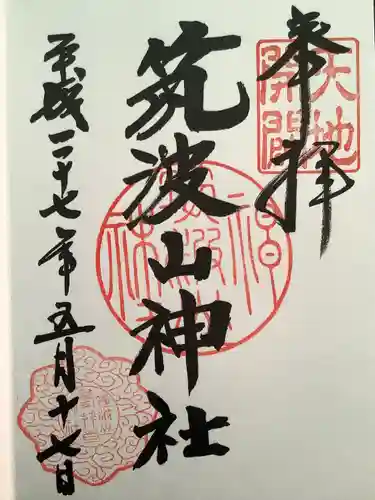 奉拝
天地
開闢
筑波山神社
平成二十七年五月十七日